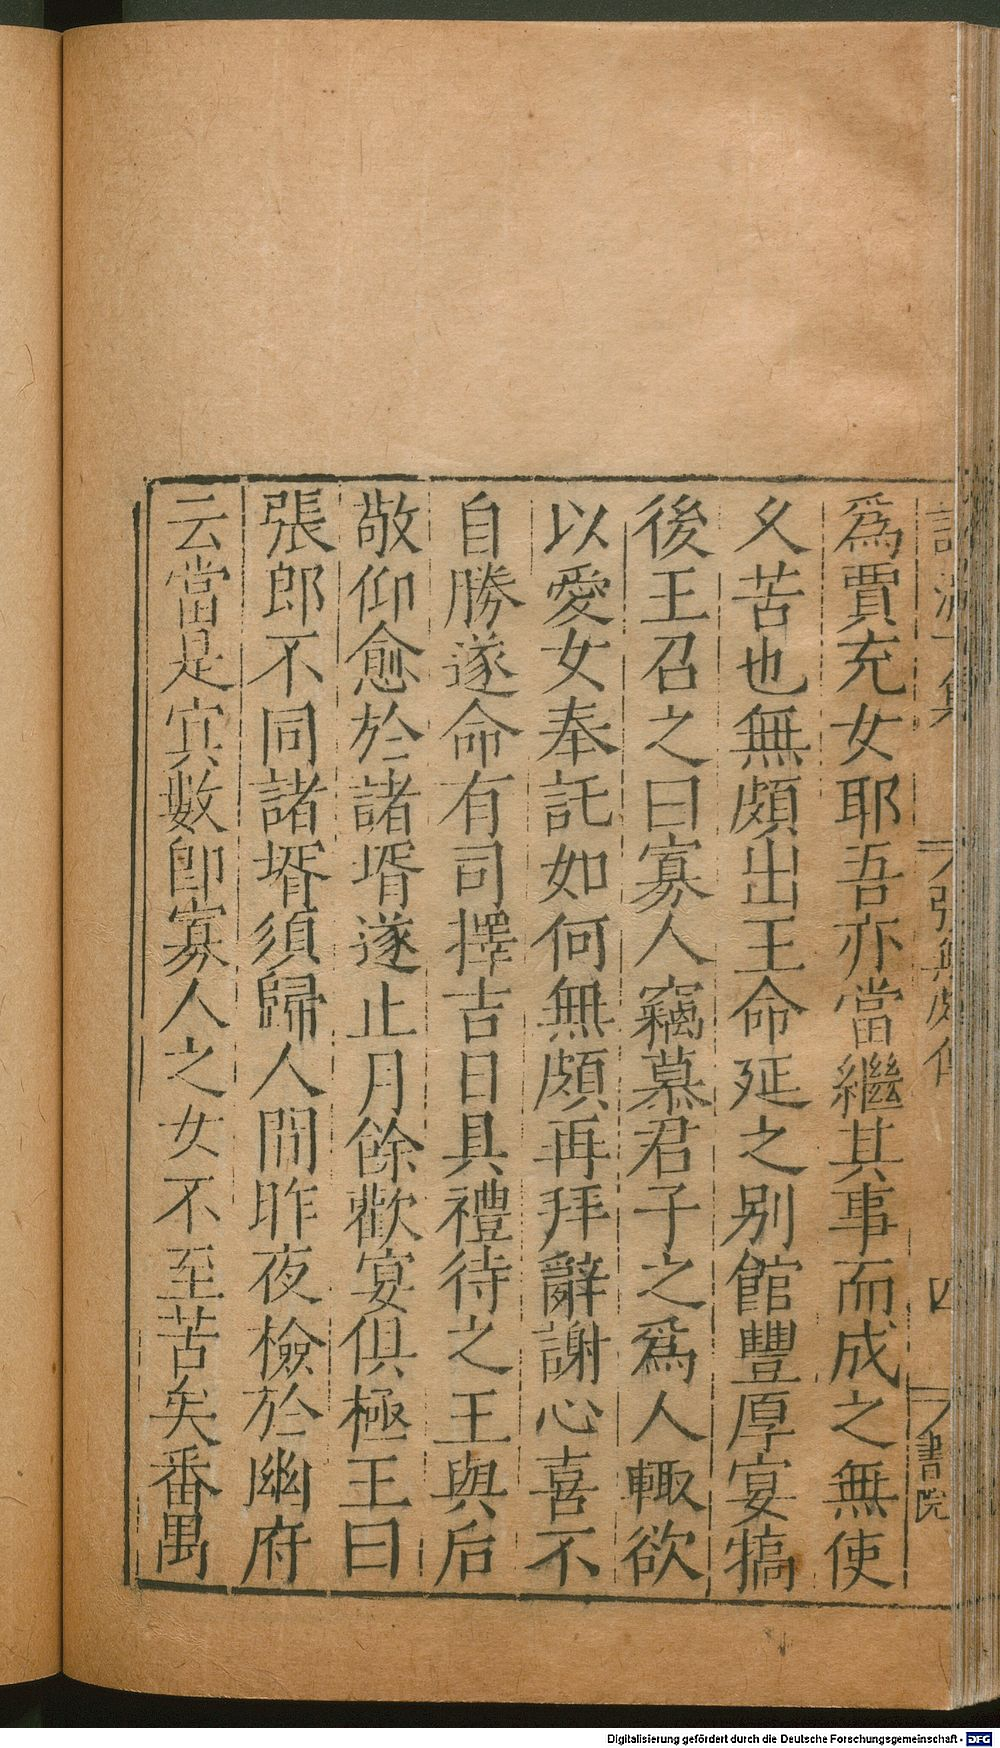 爲賈充女耶吾亦當繼其事而成之無使
久苦也無頗出王命延之别館豐厚宴犒
後王召之曰寡人竊慕君子之爲人輙欲
以愛女奉託如何無頗再拜辭謝心喜不
自勝遂命有司擇吉日具禮待之王與后
敬仰愈於諸壻遂止月餘歡宴俱極王曰
張郎不同諸壻須歸人間昨夜檢於幽府
云當是㝠數卽寡人之女不至苦矣番禺
四
書院
Digitalisierung gefördert durch die Deutsche Forschungsgemeinschaft - DFG